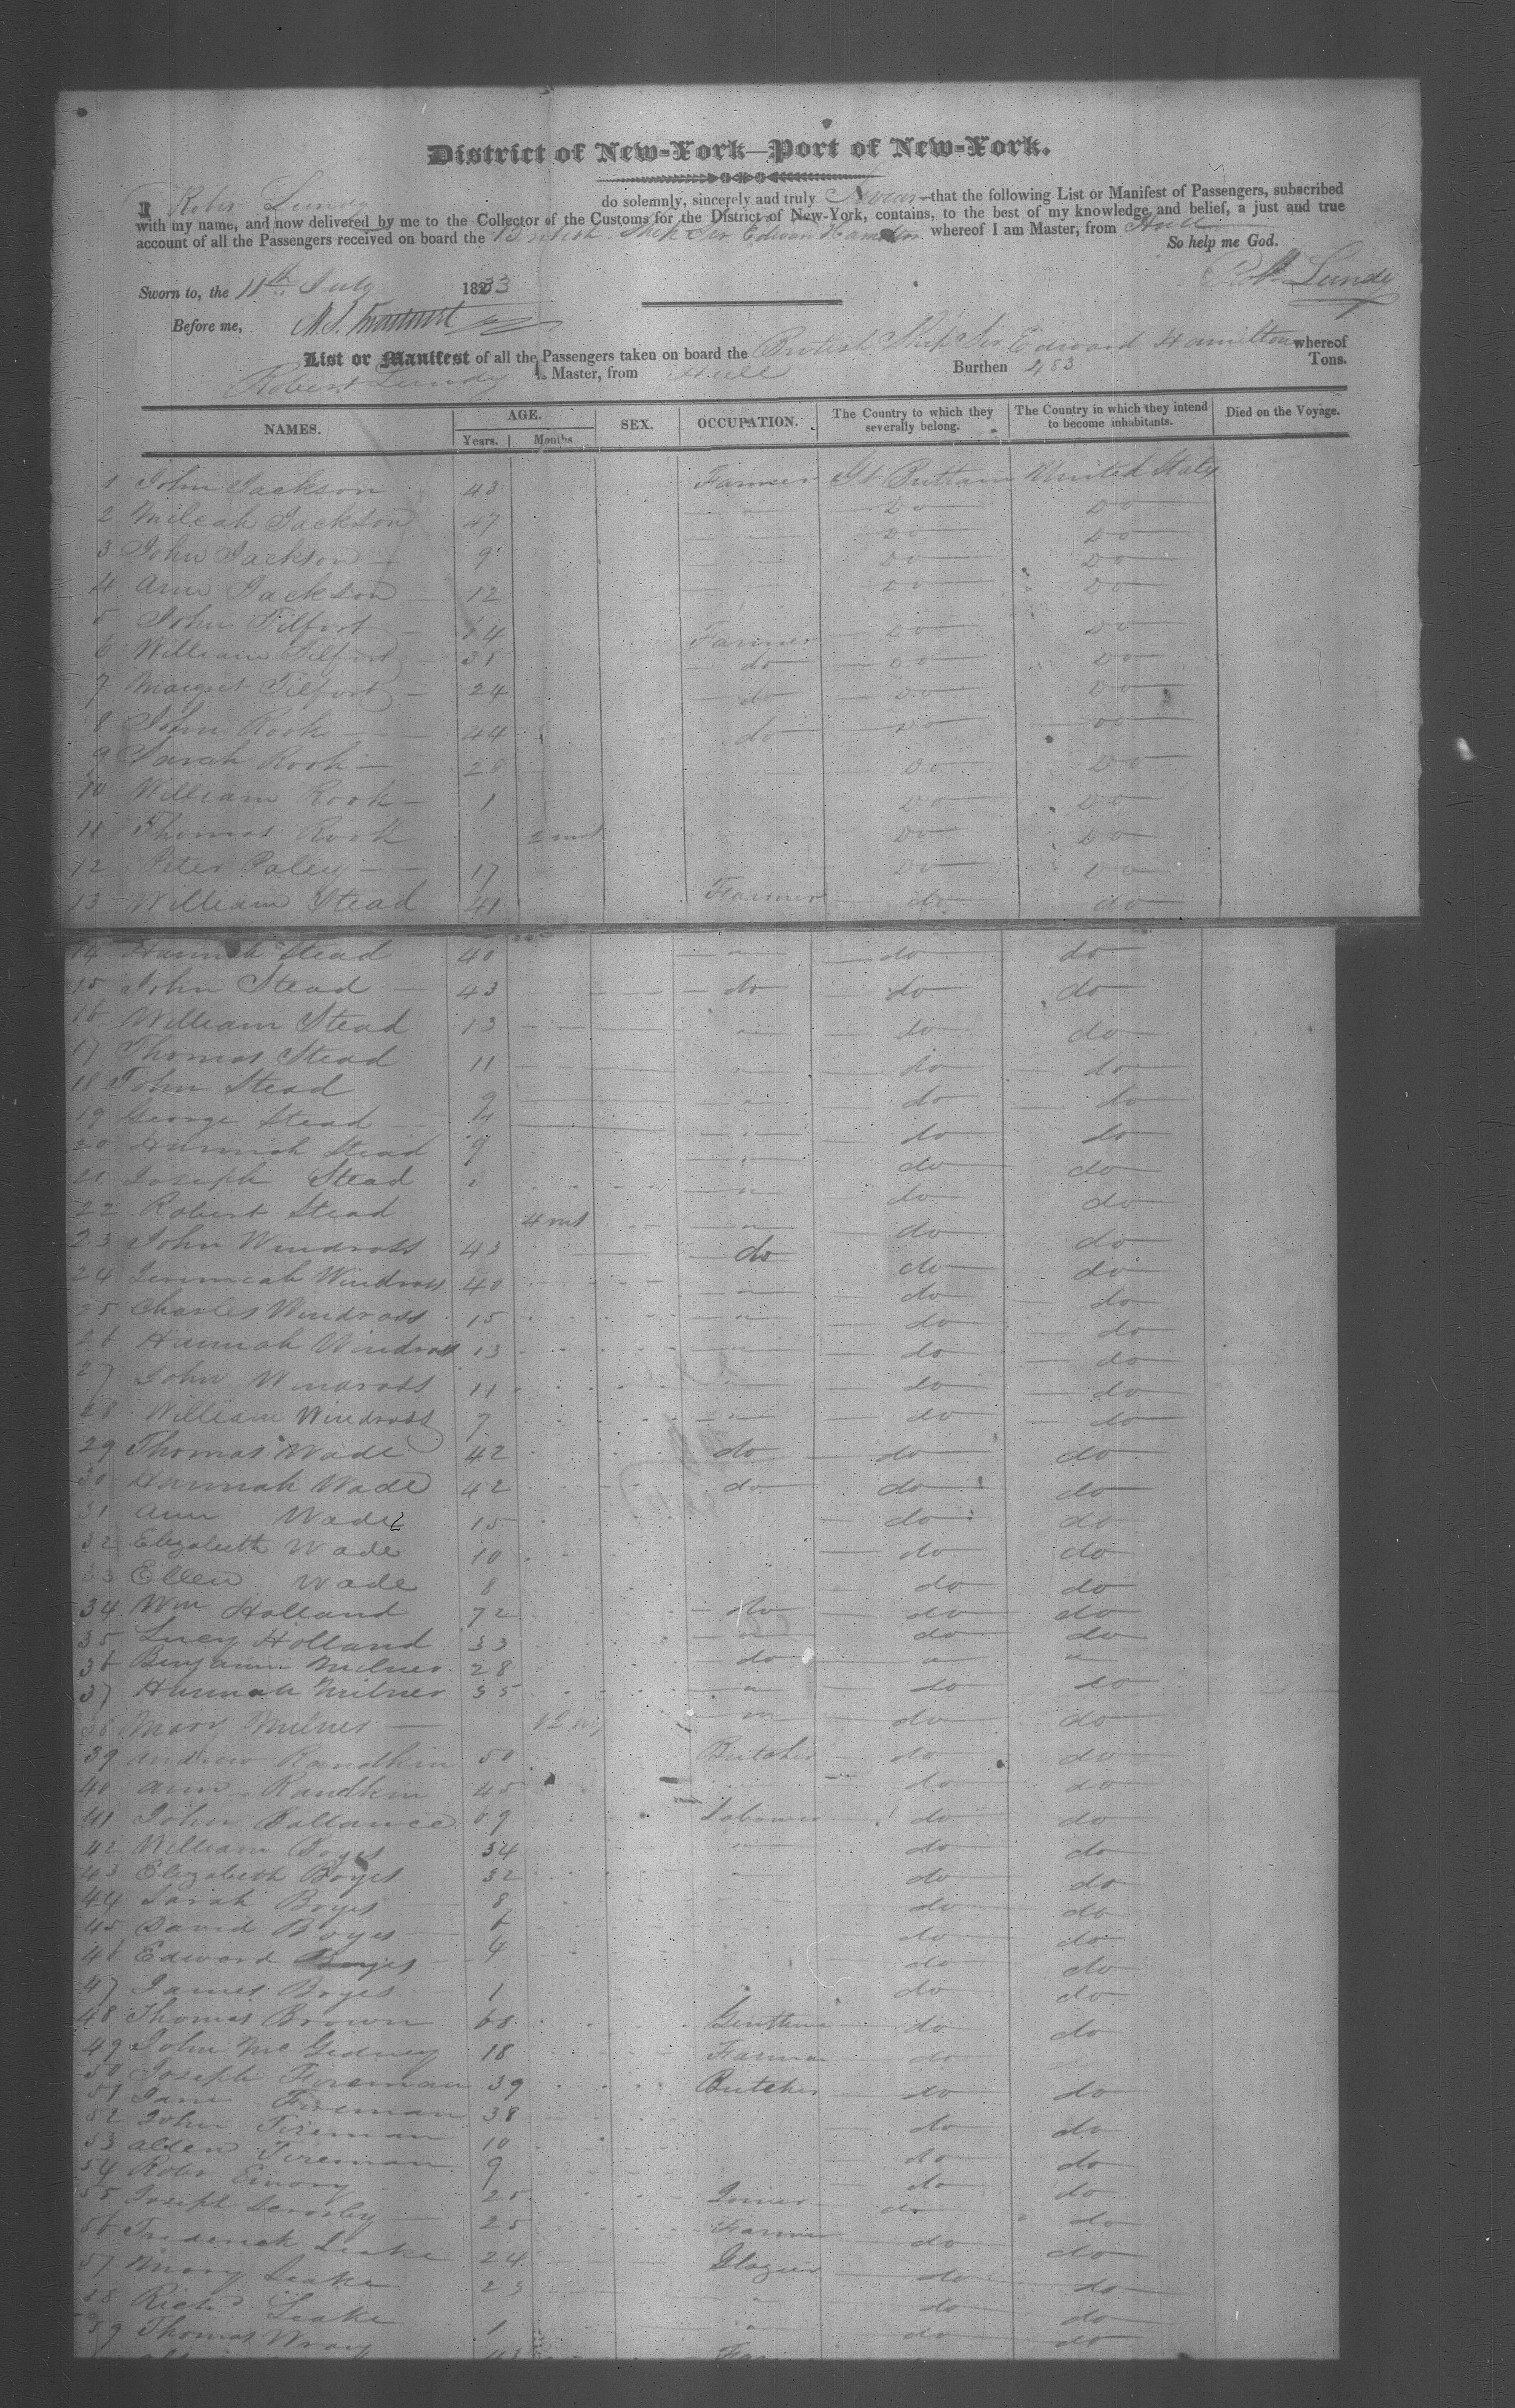 District of New-York—Port of New-York.
I Robt Lundy do solemnly, sincerely and truly Swear that the following List or Manifest of Passengers, subscribed
with my name, and now delivered by me to the Collector of the Customs for the District of New-York, contains, to the best of my knowledge and belief, a just and true
account of all the Passengers received on board the British Ship Sir Edward Hamilton whereof I am Master, from Hull
So help me God.
Robt Lundy
Sworn to, the 11th July 1833
Before me,
List or Manifest of all the Passengers taken on board the British Ship Sir Edward Hamilton whereof
Robert Lundy is Master, from Hull Burthen 483 Tons.
NAMES. AGE. Years. Months SEX. OCCUPATION. The Country to which they severally belong. The Country in which they intend to become inhabitants. Died on the Voyage.
1 John Jackson 43 Farmer Gt Brittain United States
2 Mileah Jackson 47 Do Do
3 John Jackson 9 Do Do
4 Ann Jackson 12 Do Do
5 John Tilfort Farmer Do Do
6 William Tilfort 31 do Do Do
7 Margret Tilfort 24 do Do Do
8 John Rook 44 do Do Do
9 Sarah Rook 28 Do Do
10 William Rook 1 Do Do
11 Thomas Rook 2 mts Do Do
12 Peter Paley 17 Do Do
13 William Stead 41 Farmer do do
14 Hannah Stead 40 " do do
15 John Stead 43 do do do
16 William Stead 13 " do do
17 Thomas Stead 11 " do do
18 John Stead 9 " do do
19 George Stead 4 " do do
20 Hannah Stead 9 " do do
21 Joseph Stead " do do
22 Robert Stead 4 mts " do do
23 John Windross 43 do do do
24 Jeremeah Windross 40 " do do
25 Charles Windross 15 " do do
26 Hannah Windross 13 " do do
27 John Windross 11 " do do
28 William Windross 7 " do do
29 Thomas Wade 42 do do do
30 Hannah Wade 42 do do do
31 Ann Wade 15 do do
32 Elizabeth Wade 10 do do
33 Ellen Wade 8 do do
34 Wm Holland 72 do do do
35 Lucy Holland 33 " do do
36 Benjamin Milner 28 do " "
37 Hannah Milner 35 " do do
38 Mary Milner 12 " do do
39 Andrew Randkin 50 Butcher do do
40 Ann Randkin 45 do do
41 John Ballance 69 Labourer do do
42 William Boyes 34 " do do
43 Elizabeth Boyes 32 do do
44 Sarah Boyes 8 do do
45 David Boyes 6 do do
46 Edward Boyes 4 do do
47 James Boyes 1 do do
48 Thomas Brown 68 Gentleme do do
49 John McGedney 18 Farmer do
50 Joseph Fireman 39 Butcher do do
51 Jane Fireman 38 do do
52 John Fireman 10 do do
53 Alden Fireman 9 do do
54 Robt Emory 25 Joiner do do
55 Joseph 25 Farmer do do
56 Frederick Leake 24 Glazier do do
57 Mary Leake 23 " do do
58 Richd Leake 1 " do do
59 Thomas Wray